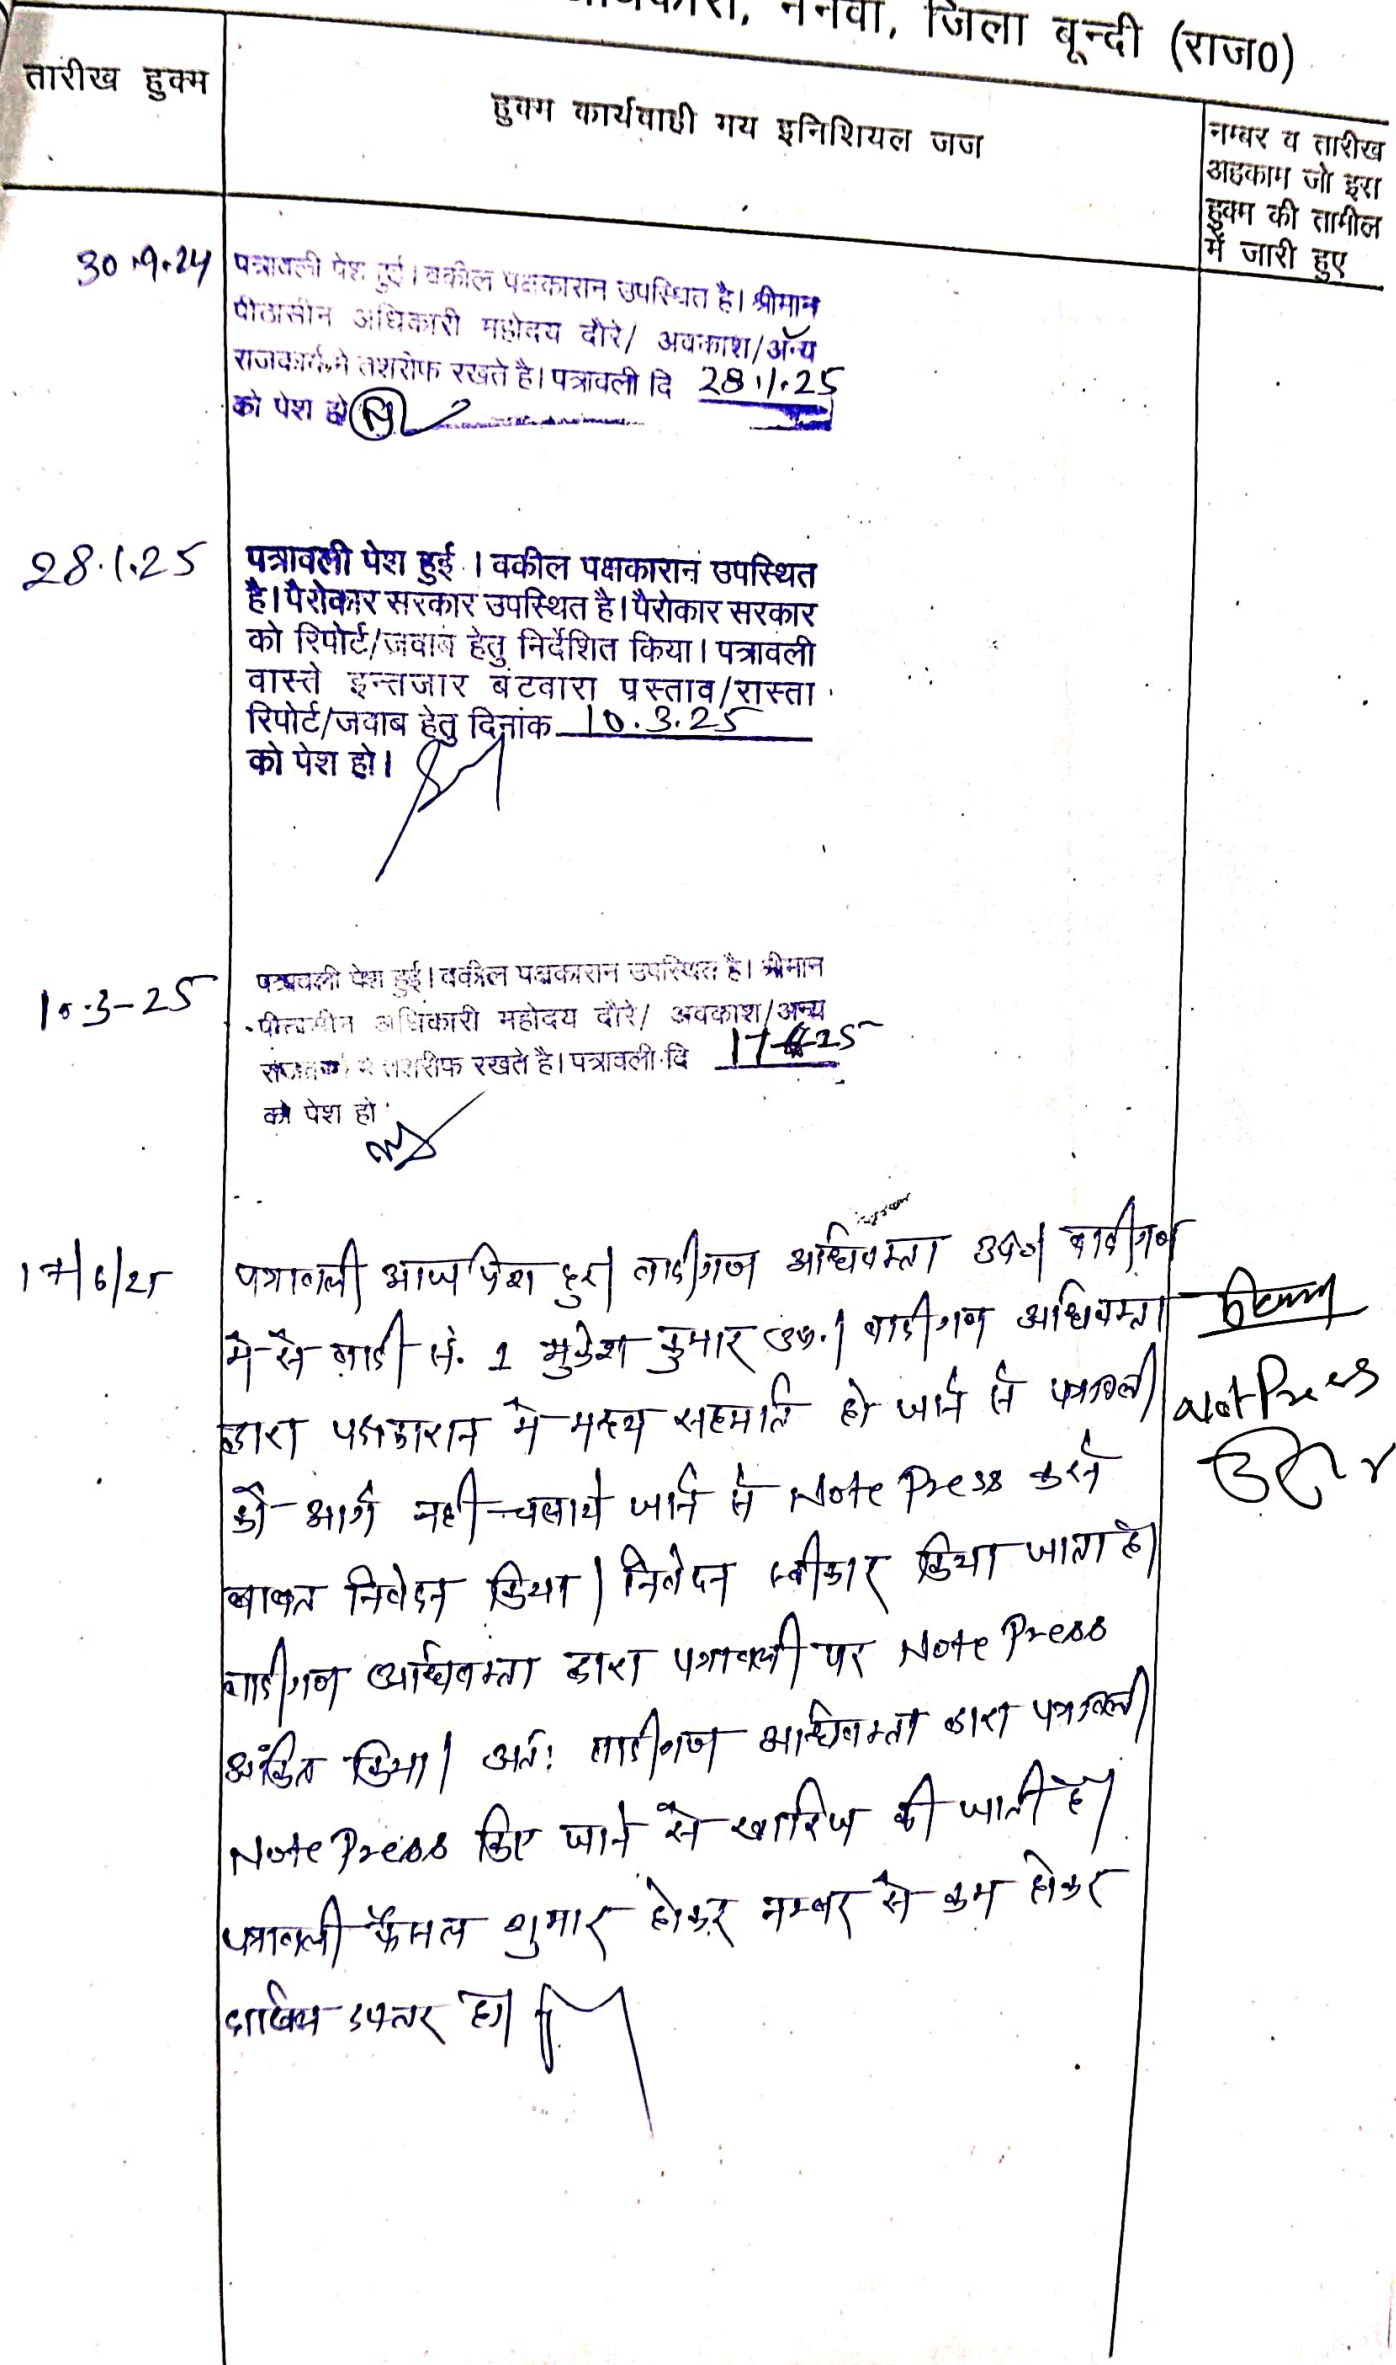 नैनवा, जिला बून्दी (राज0)
तारीख हुक्म
हुक्म कार्यवाही मय इनिशियल जज
नम्बर व तारीख
अहकाम जो इस
हुक्म की तामील
में जारी हुए
30.9.24
पत्रावली पेश हुई। वकील पक्षकारान उपस्थित है। श्रीमान
पीठासीन अधिकारी महोदय दौरे/ अवकाश/अन्य
राजकार्य मे तशरीफ रखते है। पत्रावली दि 28.1.25
को पेश हो
28.1.25
पत्रावली पेश हुई । वकील पक्षकारान उपस्थित
है। पैरोकार सरकार उपस्थित है। पैरोकार सरकार
को रिपोर्ट/जवाब हेतु निर्देशित किया। पत्रावली
वास्ते इन्तजार बंटवारा प्रस्ताव/रास्ता
रिपोर्ट/जवाब हेतु दिनांक 10.3.25
को पेश हो।
10.3-25
पत्रावली पेश हुई। वकील पक्षकारान उपस्थित है। श्रीमान
पीठासीन अधिकारी महोदय दौरे/ अवकाश/अन्य
राजकार्य मे तशरीफ रखते है। पत्रावली दि 17-6-25
को पेश हो
17/6/25
पत्रावली आज पेश हुई। वादीगण अधिवक्ता उप0। वादीगण
मे से वादी सं. 1 मुकेश कुमार उप.। वादीगण अधिवक्ता
द्वारा पक्षकारान मे मध्य सहमति हो जाने से पत्रावली
को आगे नही चलाये जाने से Note Press करने
बाबत निवेदन किया। निवेदन स्वीकार किया जाता है।
वादीगण अधिवक्ता द्वारा पत्रावली पर Note Press
अंकित किया। अतः वादीगण अधिवक्ता द्वारा पत्रावली
Note Press किए जाने से खारिज की जाती है।
पत्रावली फैसल शुमार होकर नम्बर से कम होकर
दाखिल दफ्तर हो।
Not Press